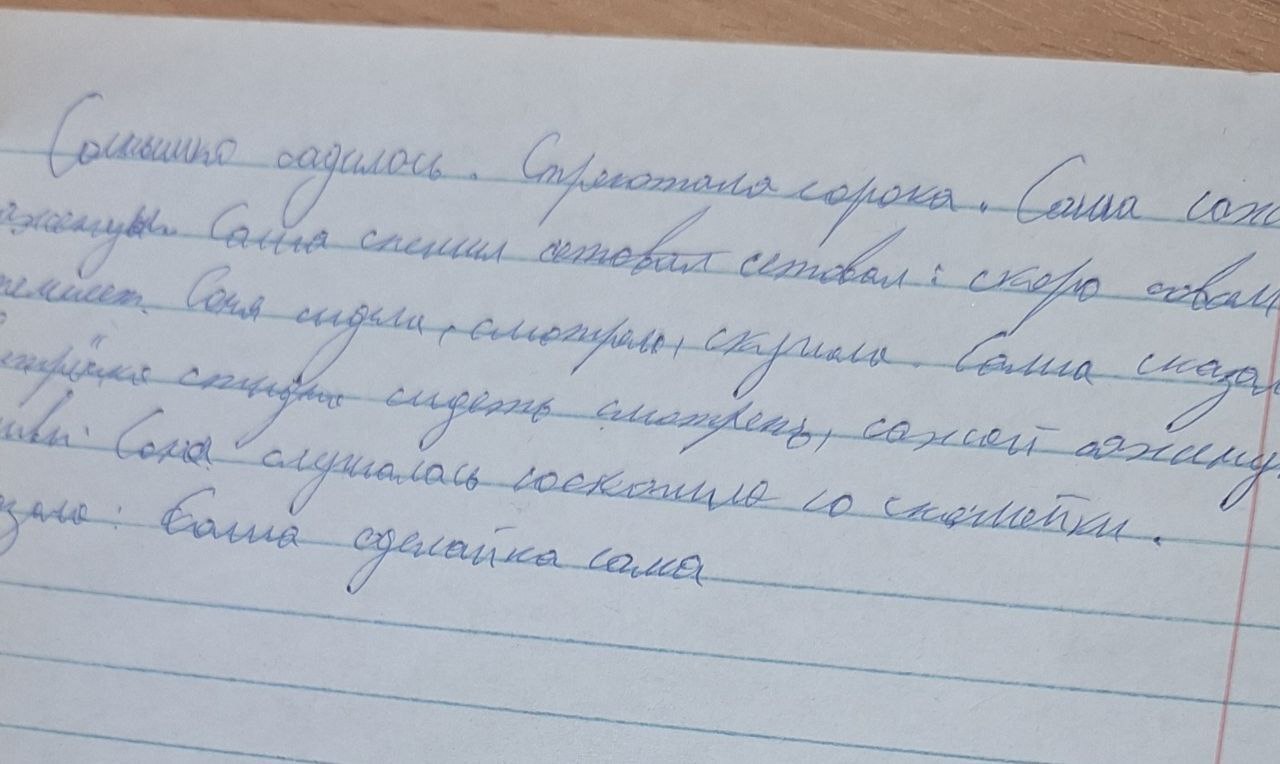 Солнышко садилось. Стрекотала сорока. Саша саж
саженцы. Саша спешил сетовал сетовал: скоро совсем
темнеет. Соня сидела, смотрела, скучала. Саша сказал
сидеть смотреть, сажай
Соня слушалась соскочила со скамейки.
Саша сделайка сама